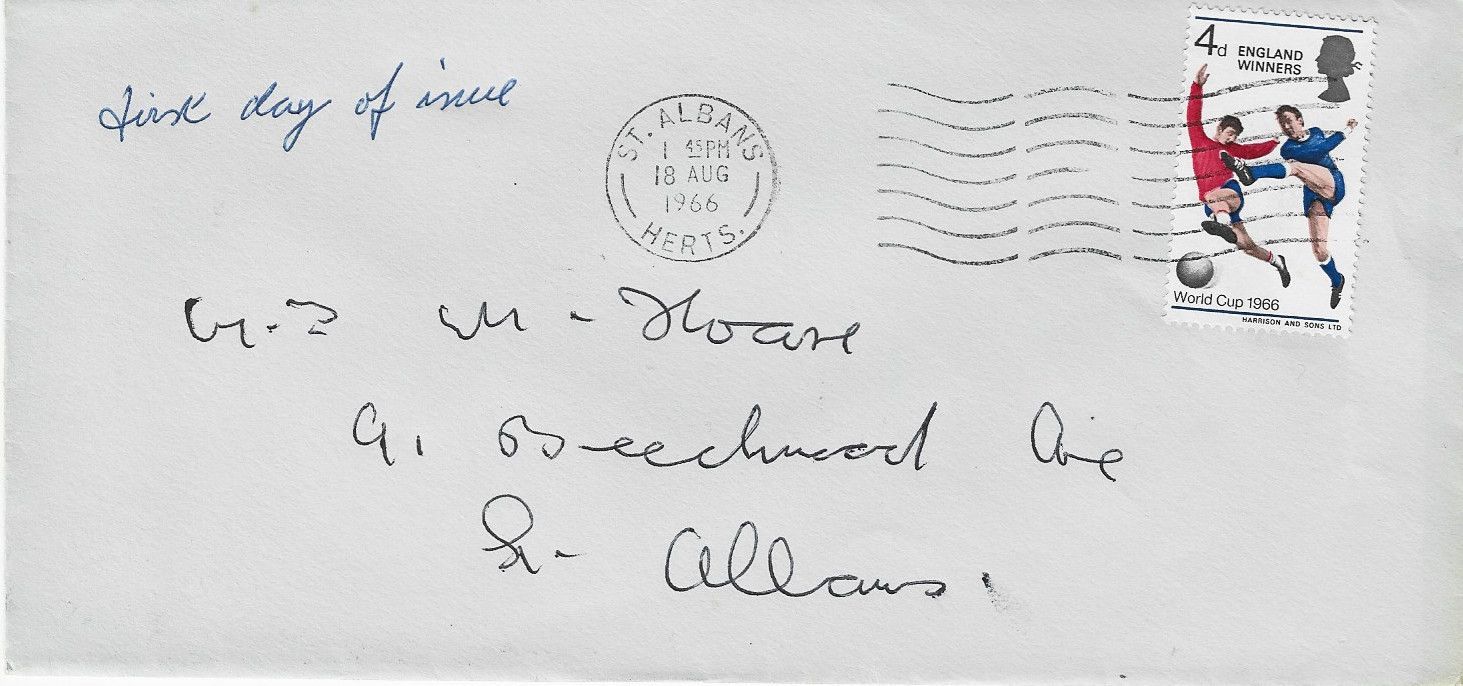 First day of issue
ST. ALBANS
1 45PM
18 AUG
1966
HERTS.
4d ENGLAND
WINNERS
World Cup 1966
HARRISON AND SONS LTD
M. Hoare
9, Beechwood Ave
St. Albans.